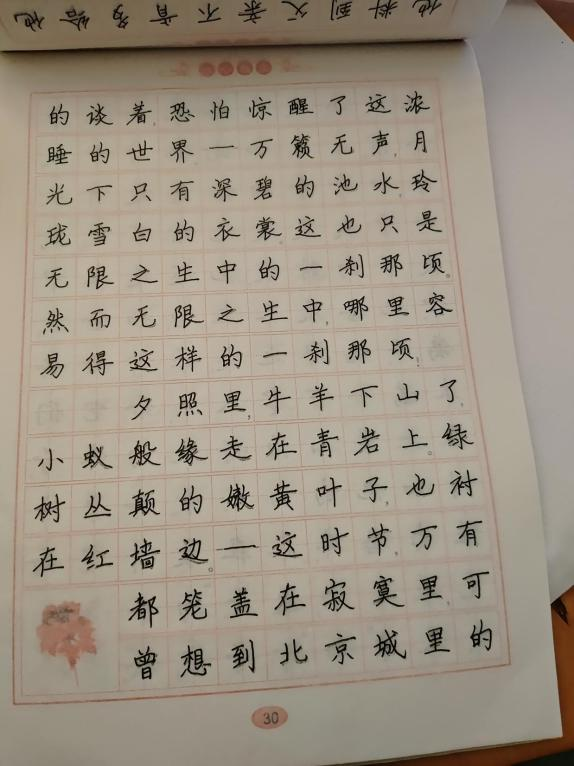 他料到父亲不肯多给他
的谈着,恐怕惊醒了这浓
睡的世界一万籁无声,月
光下只有深碧的池水,玲
珑雪白的衣裳。这也只是
无限之生中的一刹那顷。
然而无限之生中,哪里容
易得这样的一刹那顷!
夕照里,牛羊下山了,
小蚁般缘走在青岩上。绿
树丛颠的嫩黄叶子,也衬
在红墙边。——这时节,万有
都笼盖在寂寞里,可
曾想到北京城里的
30